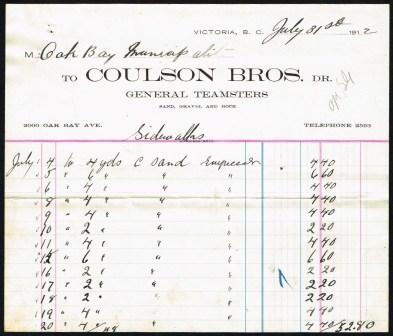 VICTORIA, B. C. July 31st 1912
M Oak Bay Municipality
TO COULSON BROS. DR.
GENERAL TEAMSTERS
SAND, GRAVEL AND ROCK
2000 OAK BAY AVE. TELEPHONE 2593
Sidewalks
July 4 to 4 yds C Sand Engineer 4 40
5 " 6 " " " 6 60
6 " 4 " " " 4 40
8 " 4 " " " 4 40
9 " 4 " " 4 40
10 " 2 " " " 2 20
11 " 4 " " " 4 40
12 " 6 " " " 6 60
16 " 2 " " " 2 20
17 " 2 " " " 2 20
18 " 2 " " 2 20
19 " 4 " " " 4 40
20 " 4 " " " 4 40 52.80